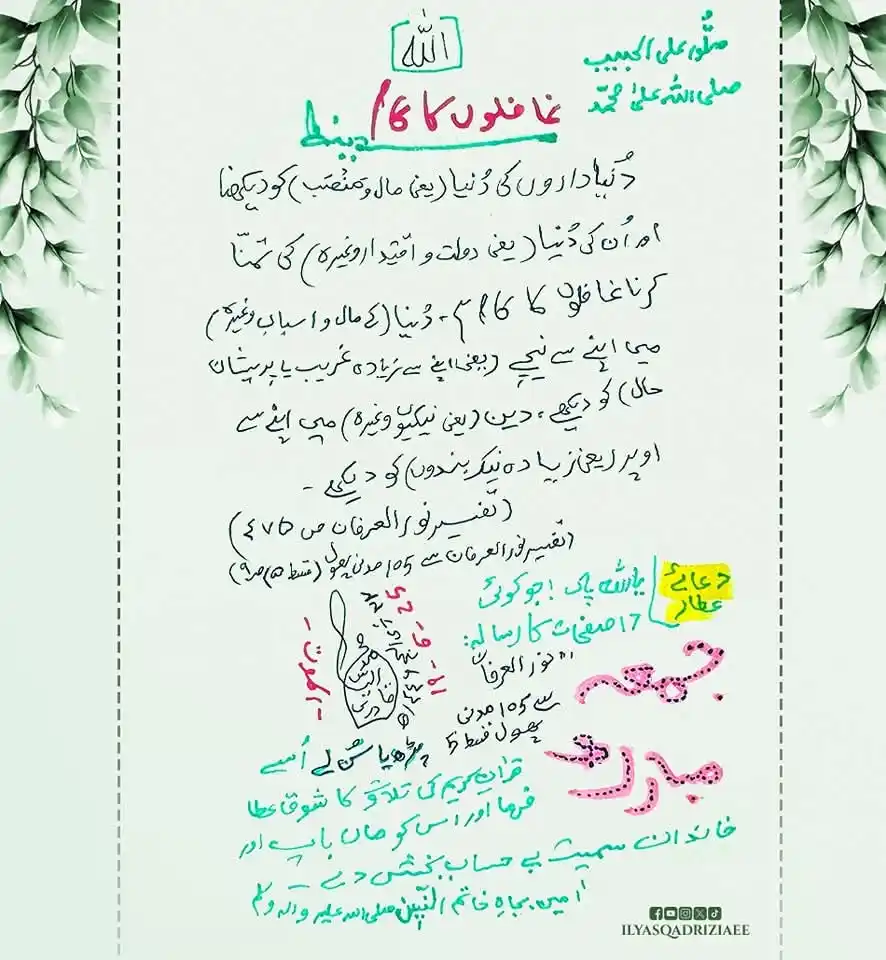 اللہ
صلّوا علی الحبیب
صلی اللہ علیٰ محمّد
غافلوں کا کام
دُنیاداروں کی دُنیا (یعنی مال و منصَب) کو دیکھنا
اور اُن کی دُنیا (یعنی دولت و اقتدار وغیرہ) کی تمنّا
کرنا غافلوں کا کام ہے، دُنیا (کے مال و اسباب وغیرہ)
میں اپنے سے نیچے (یعنی اپنے سے زیادہ غریب یا پریشان
حال) کو دیکھے، دین (یعنی نیکیوں وغیرہ) میں اپنے سے
اوپر (یعنی زیادہ نیک بندوں) کو دیکھے۔
(تفسیر نور العرفان ص ٤٧٥)
(تفسیر نور العرفان سے 105 مدنی پھول (قسط 5) ص 9)
دعائے عطار
یا اللہ پاک! جو کوئی
17 صفحات کا رسالہ:
"نور العرفان
سے 105 مدنی
پھول قسط 5
پڑھ یا سُن لے اُسے
قراٰنِ کریم کی تلاوت کا شوق عطا
فرما اور اس کو ماں باپ اور
خاندان سمیت بے حساب بخش دے۔
اٰمین بجاہِ خاتم النَّبِیّٖن صلی اللہ علیہ واٰلہٖ وسلم
جمعہ
مبارک
۔الموت۔
ILYASQADRIZIAEE